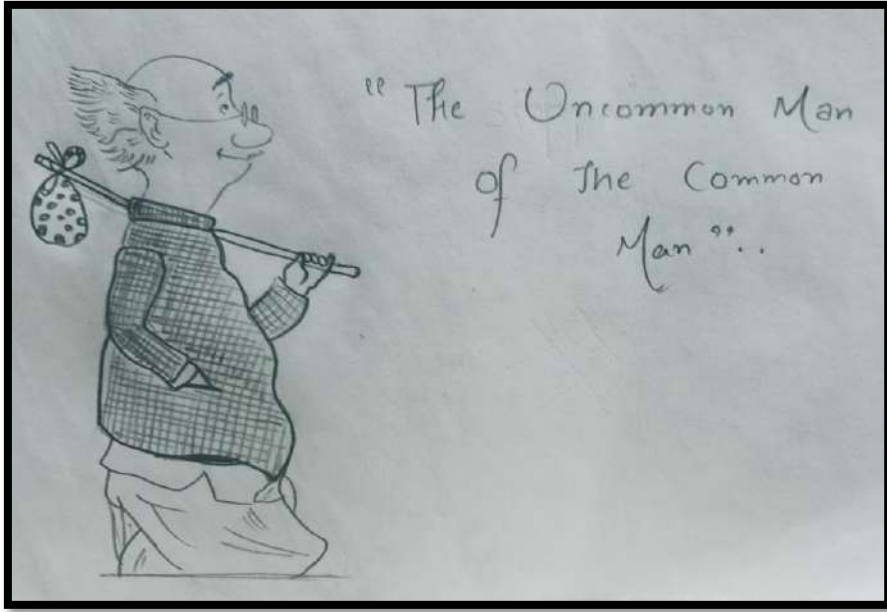 "The Uncommon Man
of The Common
Man"..